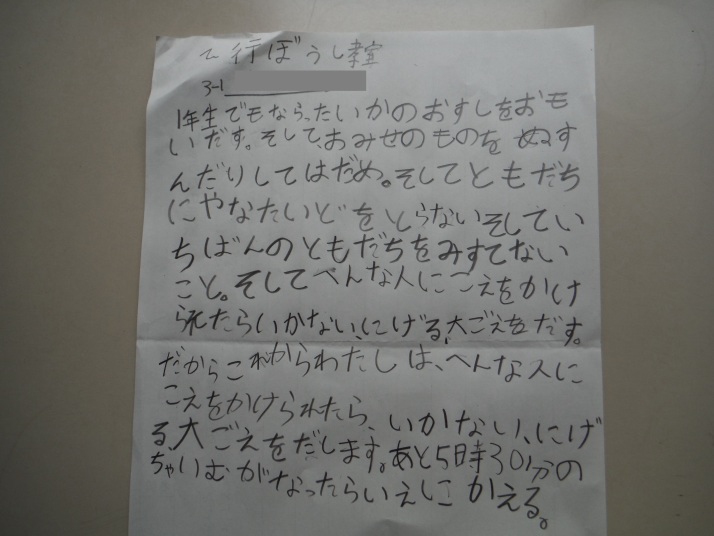 行ぼうし教室
3-1
1年生でもならったいかのおすしをおも
いだす。そして、おみせのものをぬす
んだりしてはだめ。そしてともだち
にやなたいどをとらないそしてい
ちばんのともだちをみすてない
こと。そしてへんな人にこえをかけ
られたらいかない、にげる、大ごえをだす。
だからこれからわたしは、へんな人に
こえをかけられたら、いかない、にげ
る、大ごえをだします。あと5時30分の
ちゃいむがなったらいえにかえる。